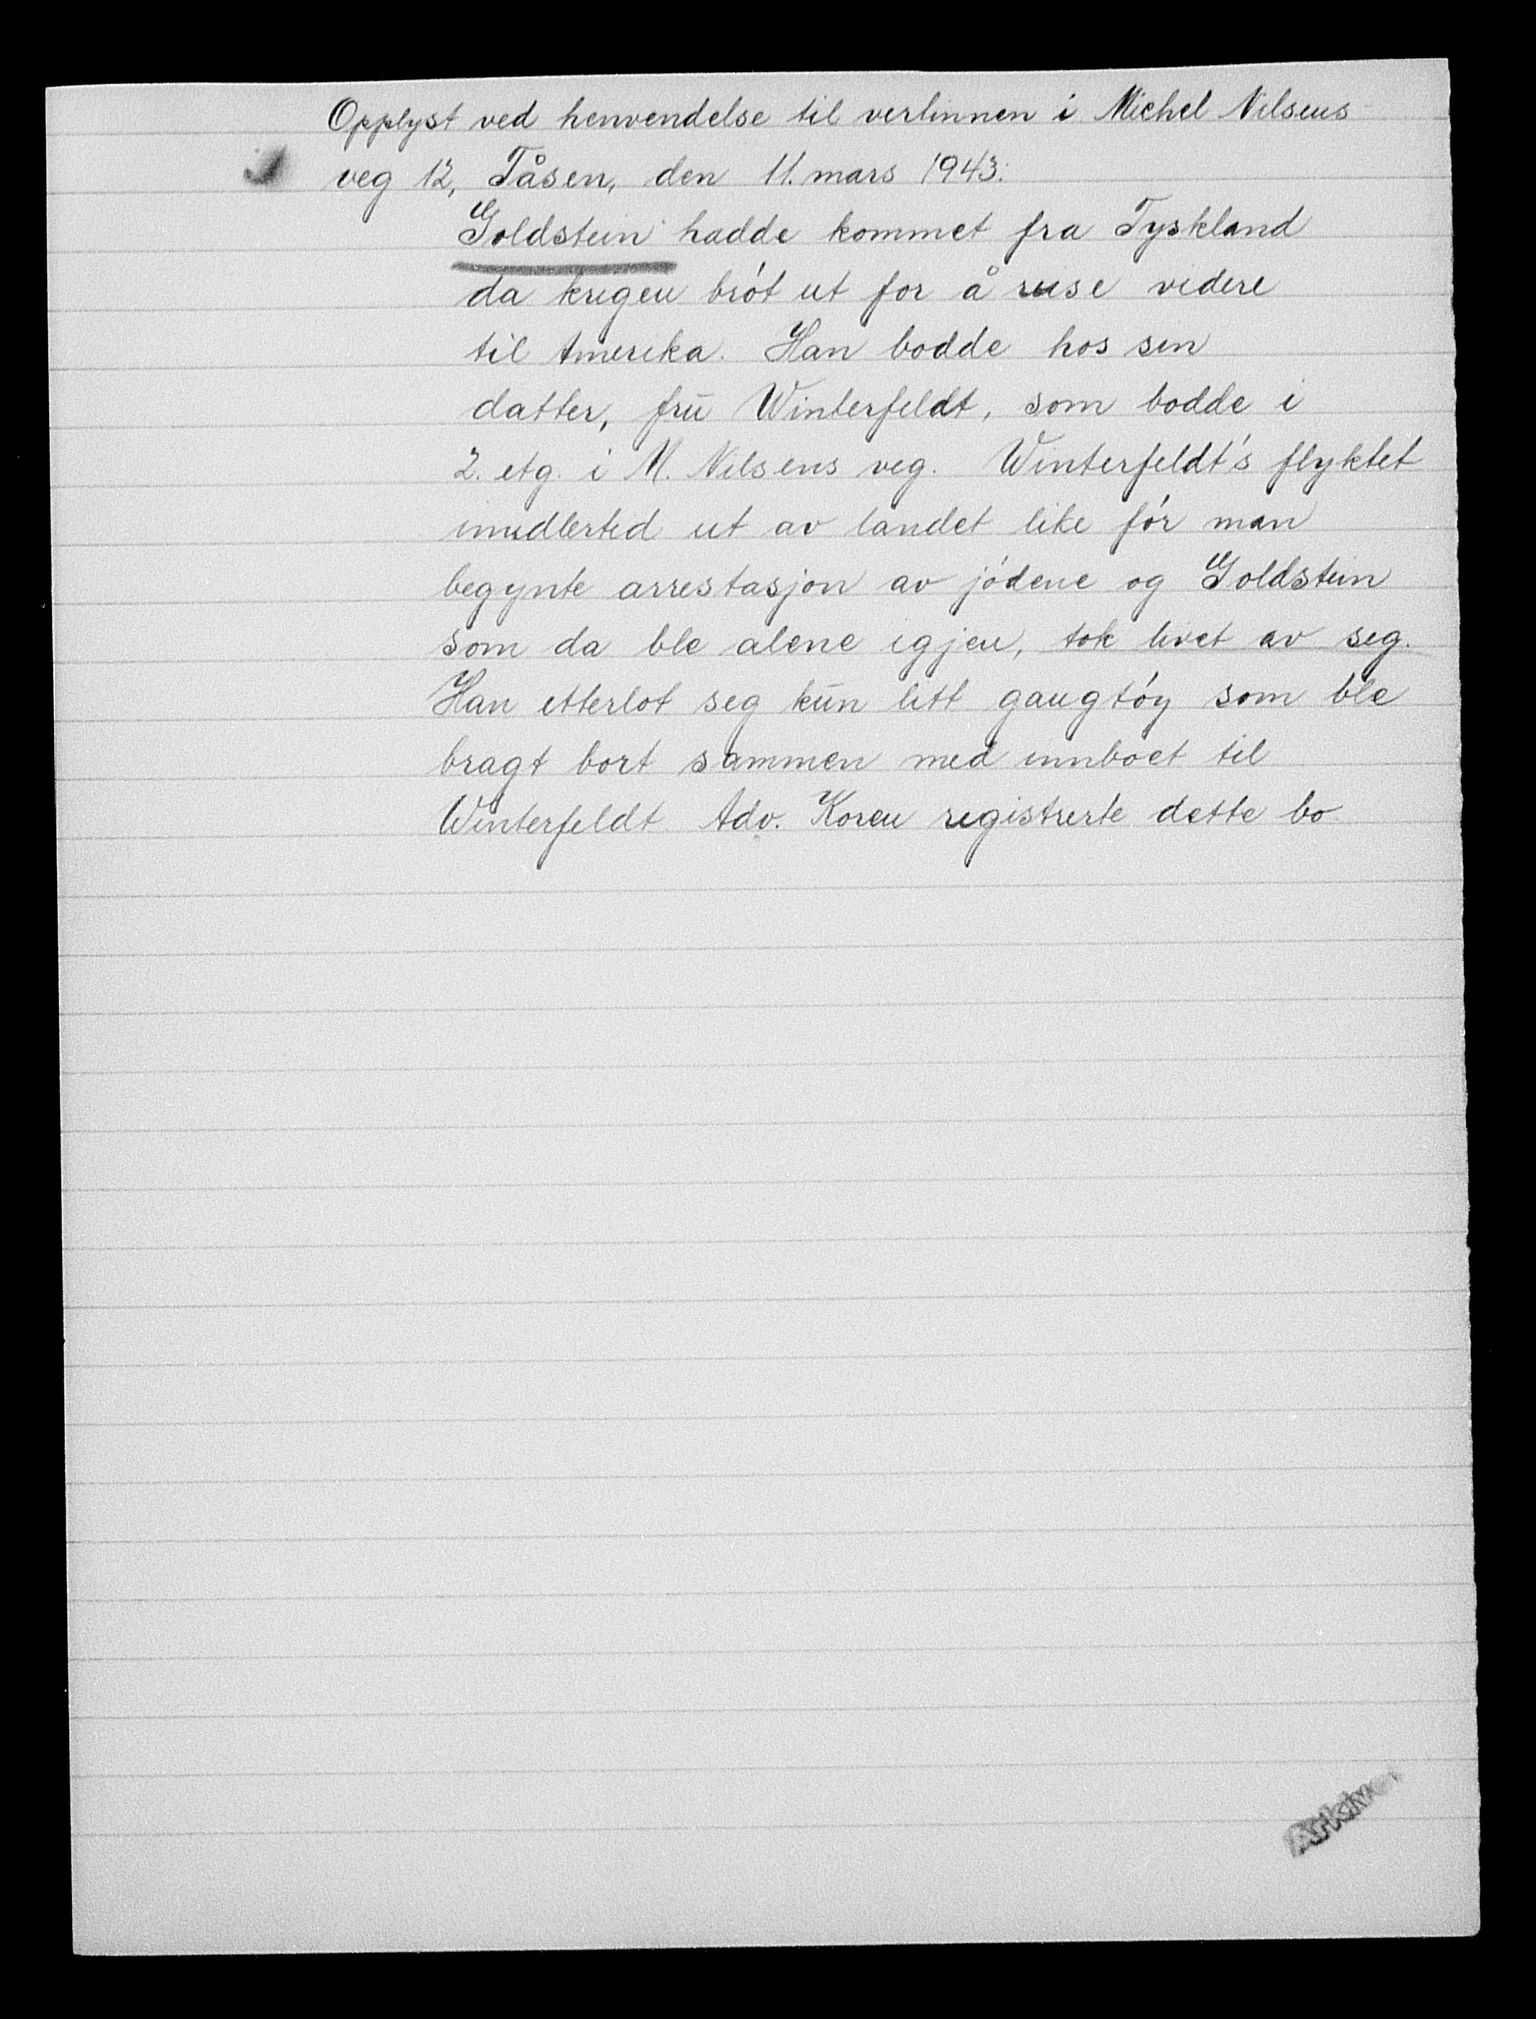 Opplyst ved henvendelse til vertinnen i Michel Nilsens
veg 12, Tåsen, den 11. mars 1943.
Goldstein hadde kommet fra Tyskland
da krigen brót ut for å reise videre
til Amerika. Han bodde hos sin
datter, frū Winterfeldt, som bodde i
2. etg. i M. Nilsens veg. Winterfeldt's flyktet
imidlertid ut av landet like fór man
begynte arrestasjon av jódene og Goldstein
som da ble alene igjen, tok livet av seg.
Han etterlot seg kūn litt gangtóy som ble
bragt bort sammen med innboet til
Winterfeldt. Adv. Koren registrerte dette bo
Arkiver